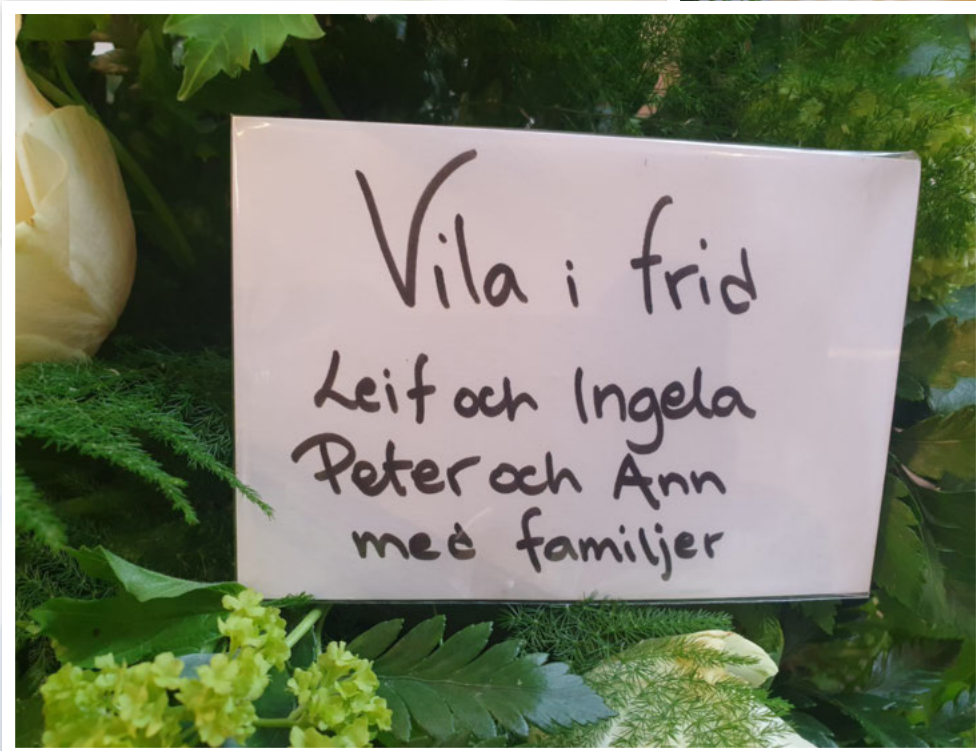 Vila i frid
Leif och Ingela
Peter och Ann
med familjer